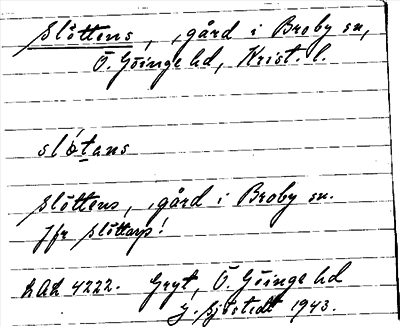 Slöttens, , gård i Broby sn,
Ö. Göinge hd, Krist. l.
slo̊tans
Slöttens, , gård i Broby sn.
Jfr Slöttarp!
LAL 4222. Gryt, Ö. Göinge hd
G. Sjöstedt 1943.